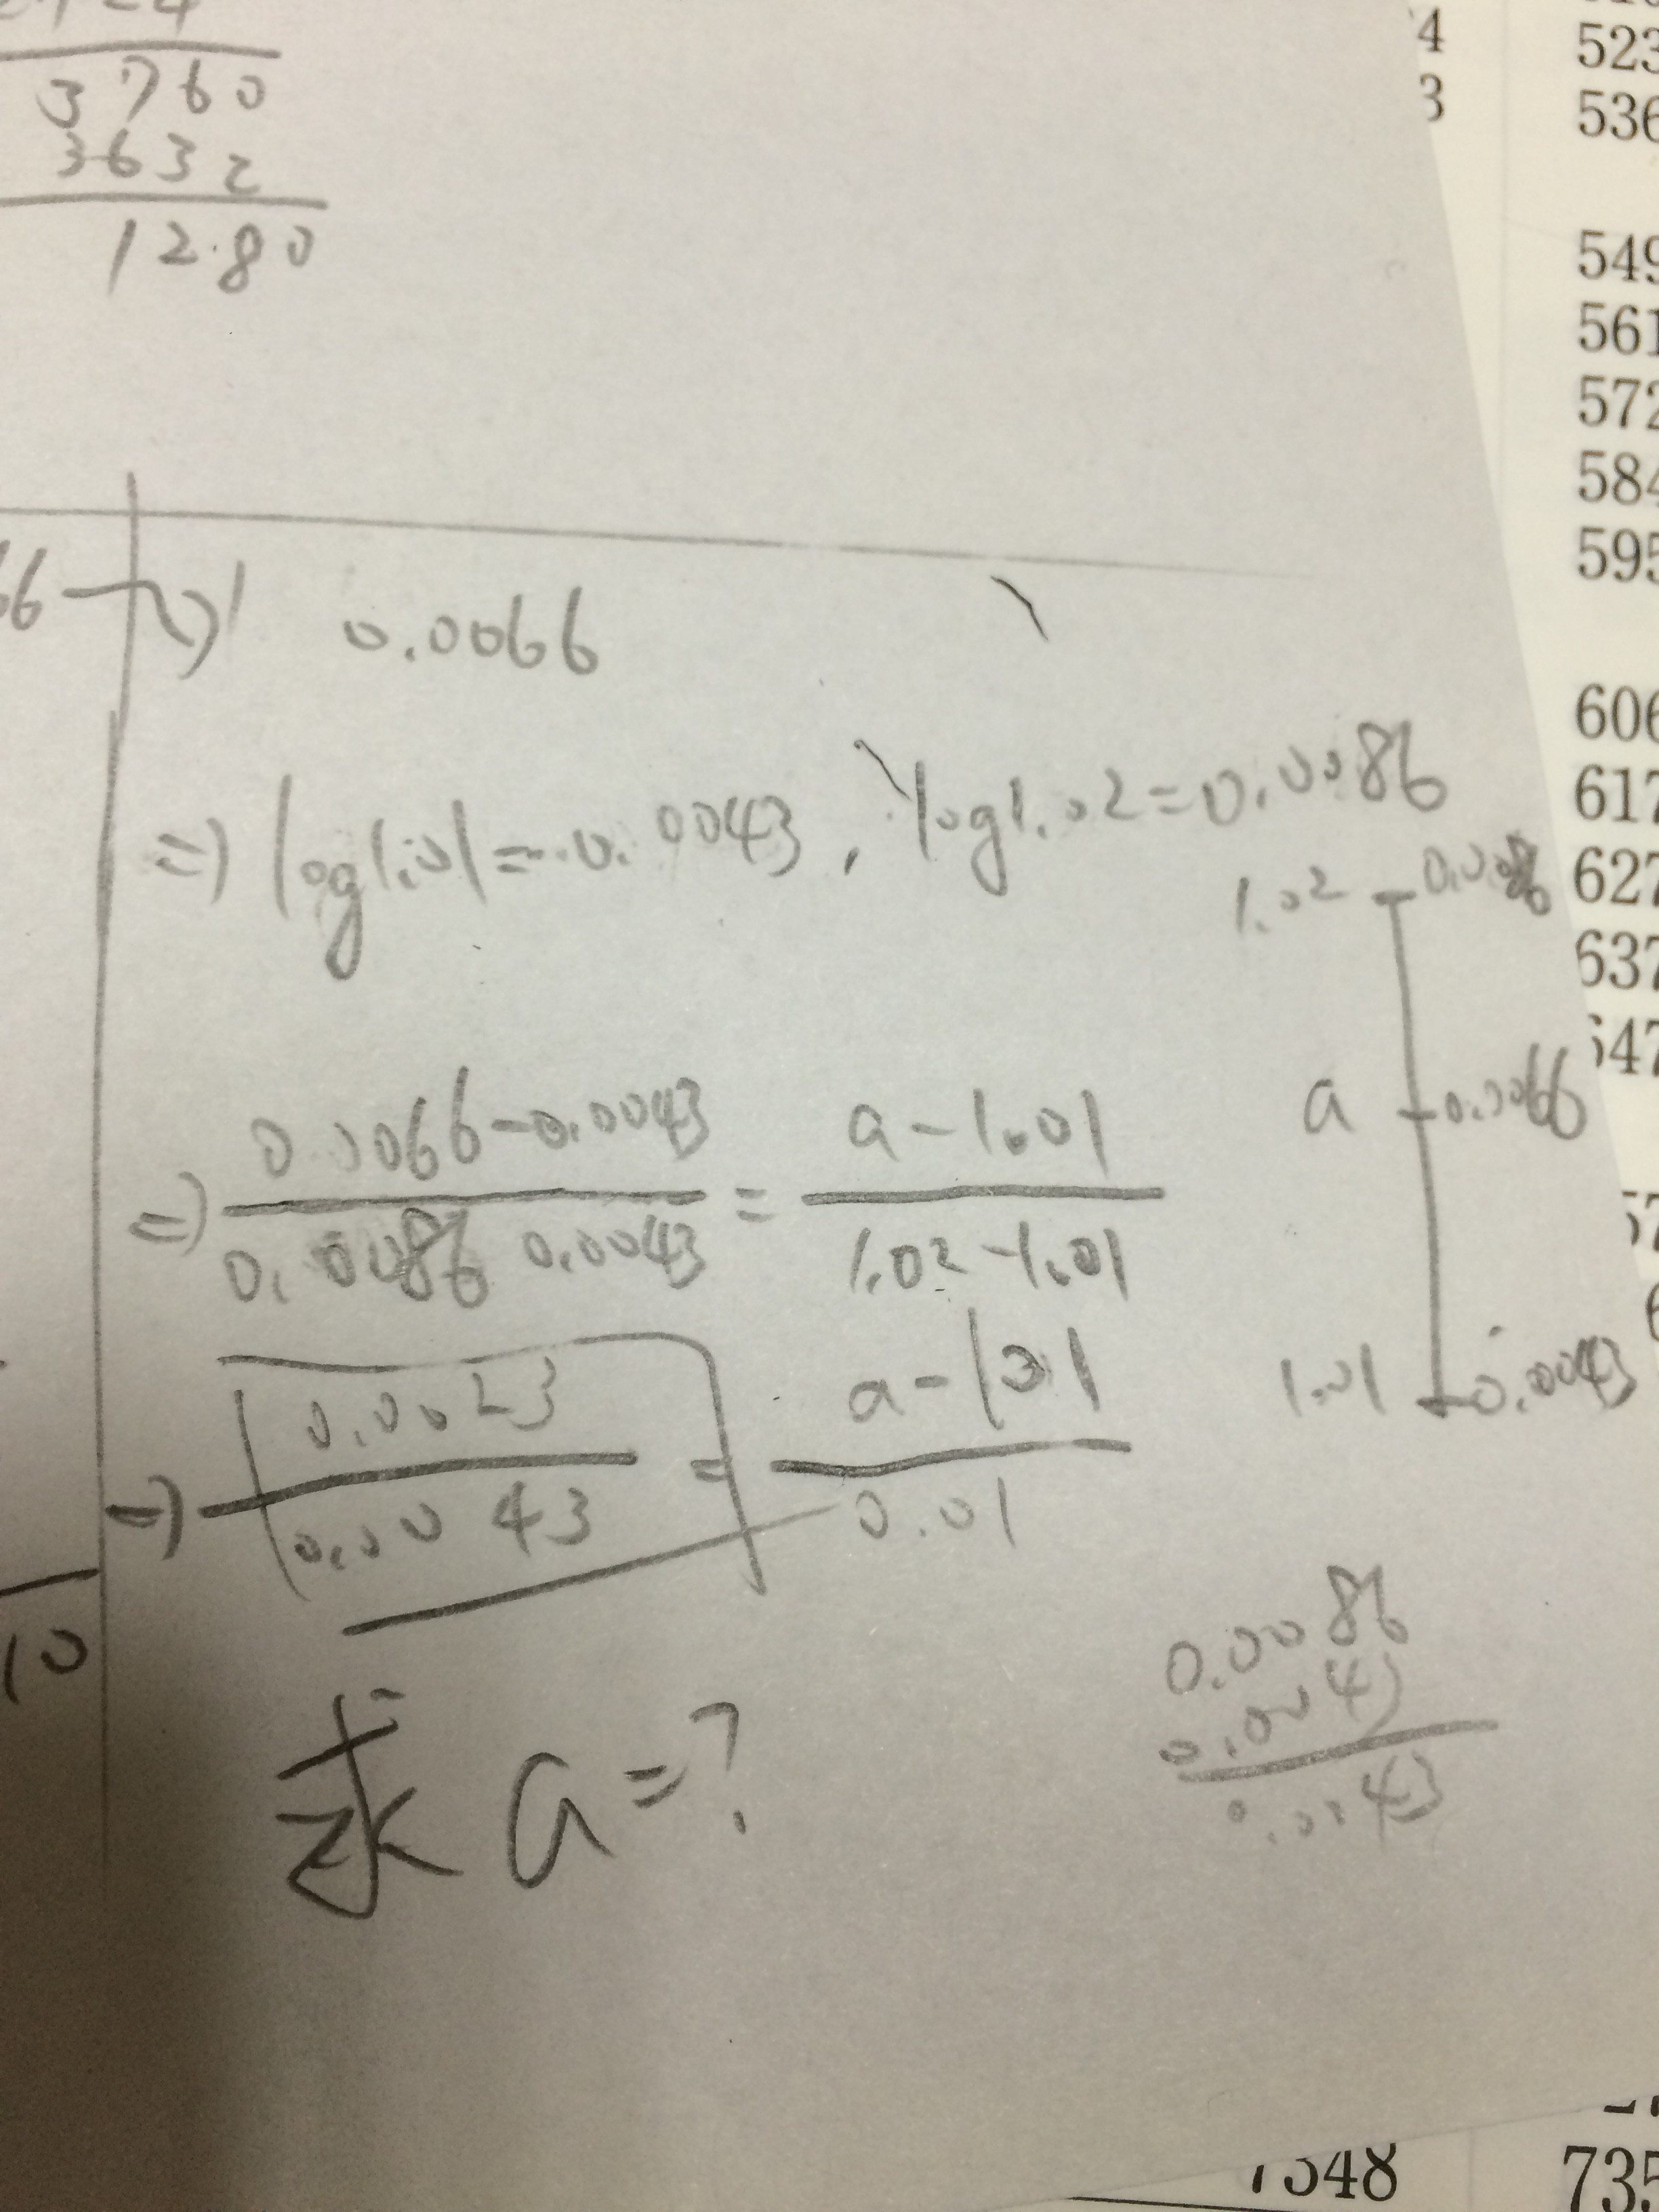 3760
3632
1280
66
0.0066
⇒ log1.01=0.0043, log1.02=0.0086
1.02 0.0086
a 0.0066
1.01 0.0043
⇒ 0.0066-0.0043 / 0.0086 0.0043 = a-1.01 / 1.02-1.01
⇒ 0.0023 / 0.0043 = a-1.01 / 0.01
10
求 a=?
0.0086
0.0043
0.0043
4
3
523
536
549
561
572
584
595
606
617
627
637
647
57
6
7348
735